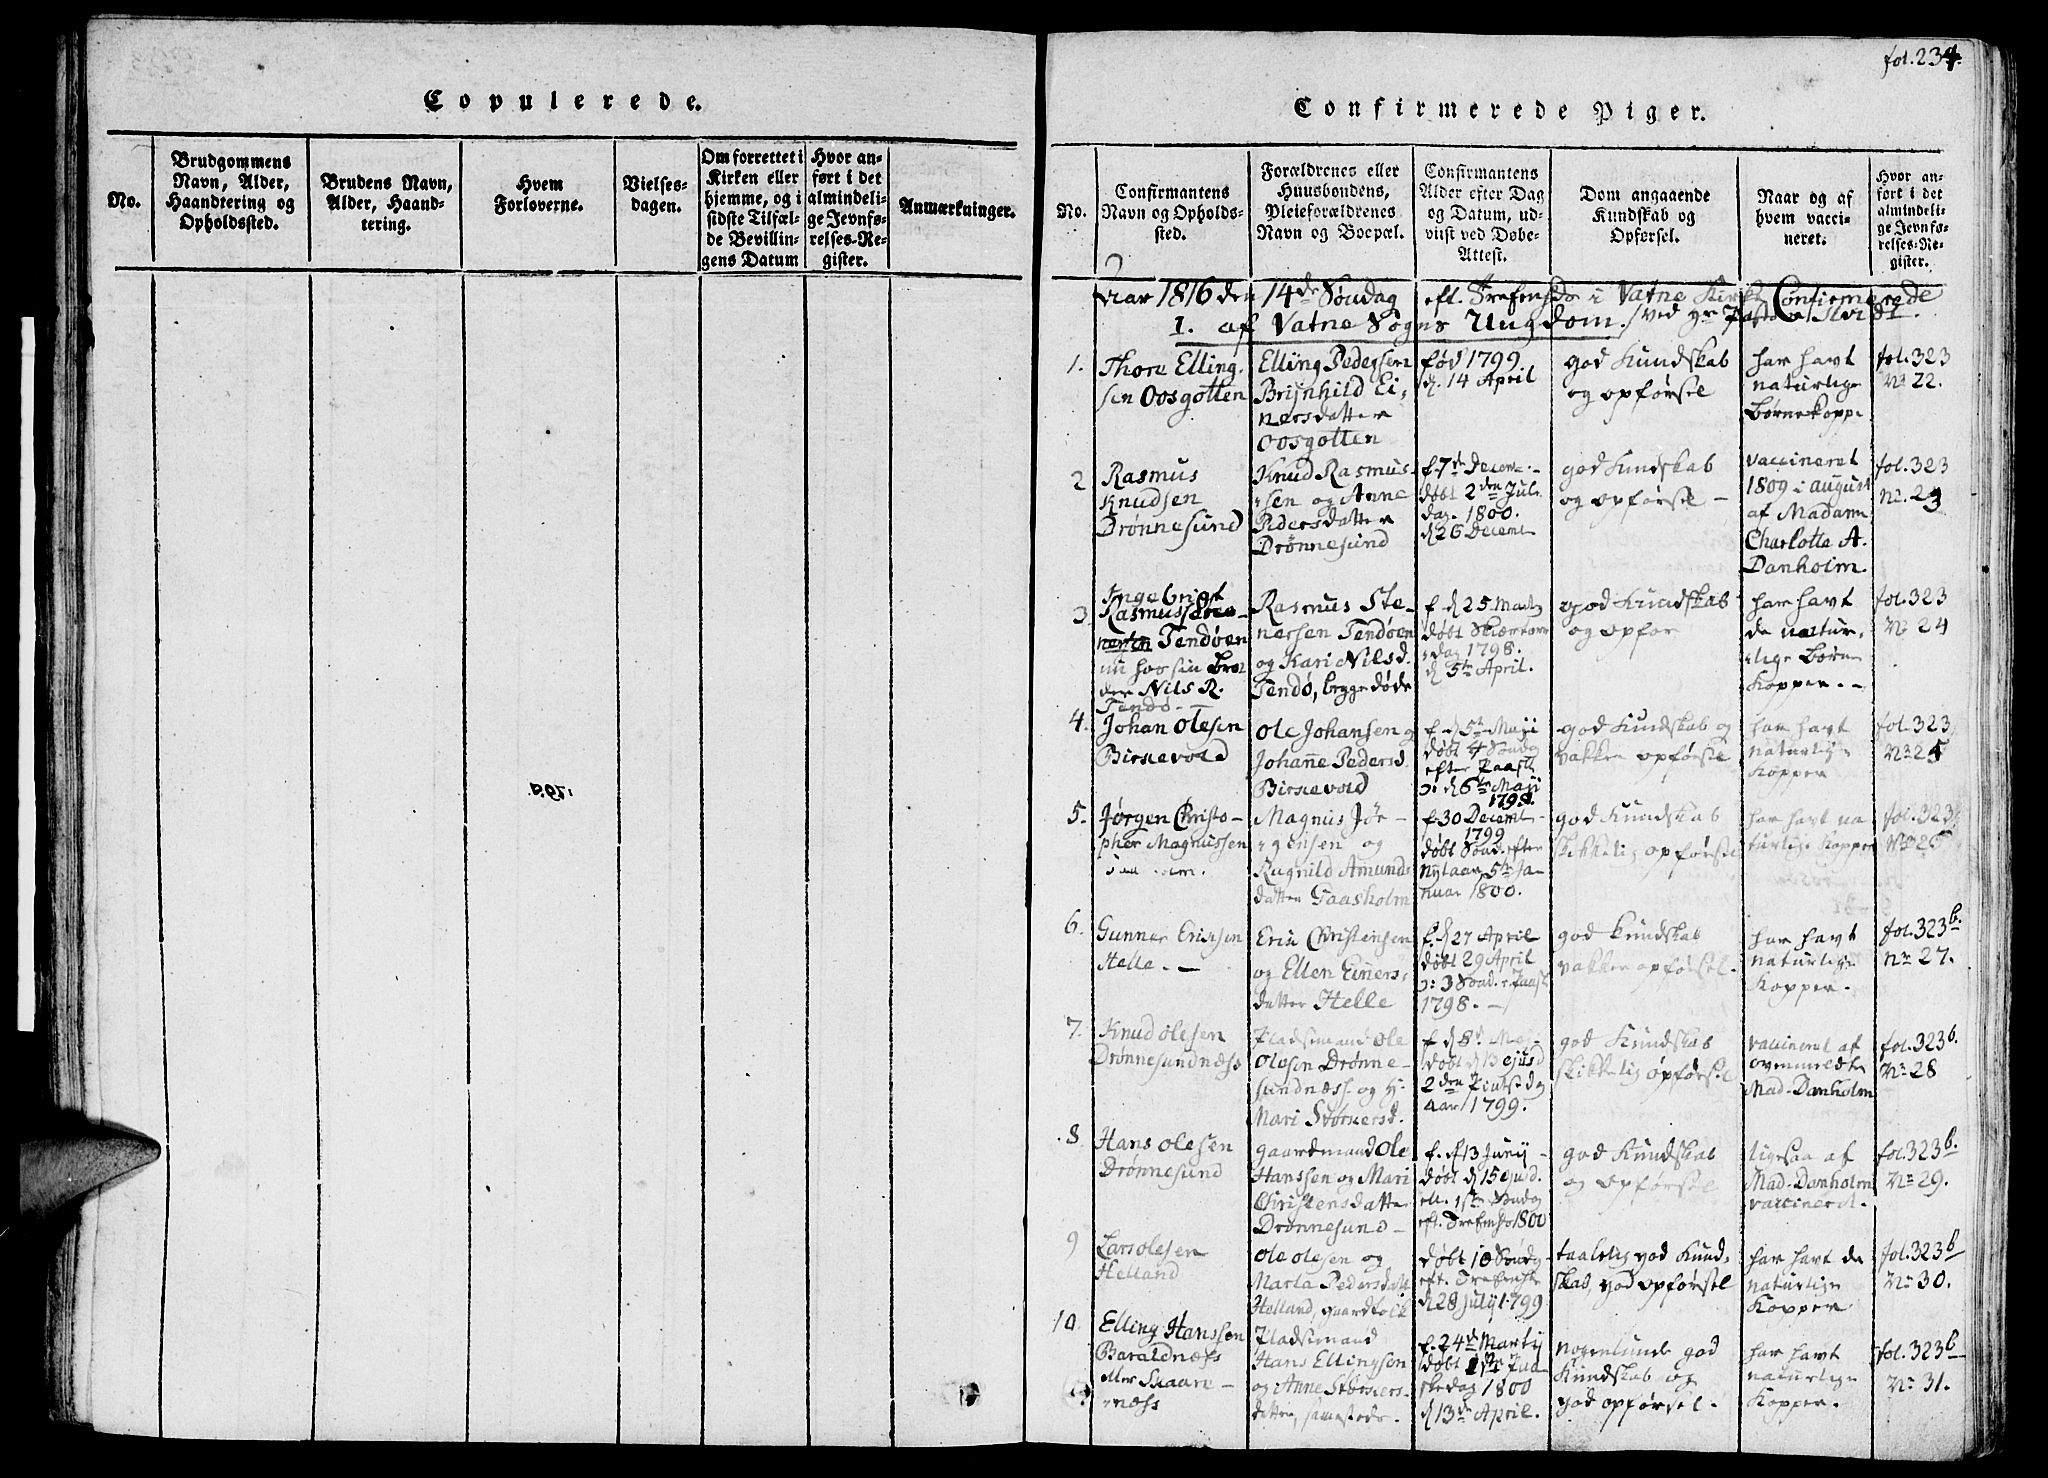 fol. 234.
Copulerede.
No.
Brudgommens
Navn, Alder,
Haandtering og
Opholdssted.
Brudens Navn,
Alder, Haand-
tering.
Hvem
Forloverne.
Vielses-
dagen.
Om forrettet i
Kirken eller
hjemme, og i
sidste Tilfæl-
de Bevillin-
gens Datum
Hvor an-
ført i det
almindeli-
ge Jevnfø-
relses-Re-
gister.
Anmærkninger.
Confirmerede Piger.
No.
Confirmantens
Navn og Opholds-
sted.
Forældrenes eller
Huusbondens,
Pleieforældrenes
Navn og Boepæl.
Confirmantens
Alder efter Dag
og Datum, ud-
viist ved Døbe-
Attest.
Dom angaaende
Kundskab og
Opførsel.
Naar og af
hvem vacci-
neret.
Hvor an-
ført i det
almindeli-
ge Jevnfø-
relses-Re-
gister.
Aar 1816 den 14de Søndag eft. Trefensde i Vatne Kirke Confirmerede
1. af Vatne Sogns Ungdom. /ved Hr
1.
Thore Elling-
sen Oosgotten
Elling Pedersen
Brijnhild Ei-
nersdatter
Oosgotten
fød 1799
d. 14 April
god Kundskab
og opførsel
har havt
naturlige
Børnekopper
fol. 323
No 22.
2
Rasmus
Knudsen
Drønnesund
Knud Rasmus-
sen og Anne
Pedersdatter
Drønnesund
f. 7de Decem-
døbt 2den Jule
dag 1800.
d 26 Decemb
god Kundskab
og opførsel -
vaccineret
1809 i august
af Madam
Charlotte A.
Danholm.
fol. 323
No. 23
3
Ingebrigt
Rasmussen
Tendøen
nu hos sin Bro
der Nils R.
Tendø -
Rasmus Ste-
nersen Tendøen
og Kari Nilsd.
Tendø, begge døde
f. d 25 Marty
døbt Skiertors
dag 1798.
d 5te April.
god Kundskab
og opfør
har havt
de natur-
lige Børne
Kopper. -
fol. 323
No 24
4.
Johan Olesen
Birkevold
Ole Johansen og
Johanne Pedersd.
Birkevold
f. d 5te Maji
døbt 4 Søndg
efter Paask
ɔ: d 6te Maji
1799.
god Kundskab og
vakker opførsel
har havt
naturlige
Kopper
fol. 323
No 25
5.
Jørgen Christo-
pher Magnussen
Magnus Jør-
gensen og
Ragnild Amunds
datter Gaasholm
f. 30 Decemb
1799
døbt Sønd. efter
nytaar 5te Ja-
nuar 1800.
god Kundskab
skikkelig opførsel
har havt na
turlige Kopper
fol. 323
No 26
6.
Gunner Ericksen
Helle. -
Erik Christensen
og Ellen Einers-
datter Helle
f. d 27 April
døbt 29 April
ɔ: 3 Sønd. e. Paask
1798. -
god kundskab
vakker opførsel.
har havt
naturlige
Kopper.
fol. 323 b.
No 27.
7.
Knud Olesen
Drønnesundnæss
Pladsemand Ole
Olesen Drønne-
sundnæss og H.
Mari Størkersd.
f. d 8d Maj
døbt d 13 ejusd
2den Pintsedag
aar 1799.
god Kundskab
skikkelig opførsel
vaccineret af
ovenmeldte
Mad. Danholm
fol. 323 b.
No 28
8.
Hans Olesen
Drønnesund
Gaardmand Ole
Hanssen og Mari
Christensdatter
Drønnesund -
f. d 13 Junij -
døbt d 15 ejusd.
ell. 1ste Søndag
eft. Trefensho 1800
god Kundskab
og opførsel
ligesaa af
Mad. Danholm
vaccineret.
fol. 323 b.
No 29.
9
Lars Olesen
Helland
Ole Olesen og
Marta Pedersdatt
Helland, gaardfolk
døbt 10 Søndg
eft. Trefensho
d 28 Julij 1799
taalelig god Kund-
skab, god opførsel
har havt de
naturlige
Kopper
fol. 323 b
No 30.
10.
Elling Hanssen
Baraldnæss
eller Skaare-
næss
Pladsemand
Hans Ellingsen
og Anne Størkers-
datter, sammestede.
f. 24d Martij
døbt 1ste Paa-
skedag 1800
d 13de April.
nogenlunde god
Kundskab og
god opførsel.
har havt
naturlige
Kopper.
fol. 323 b
No 31.